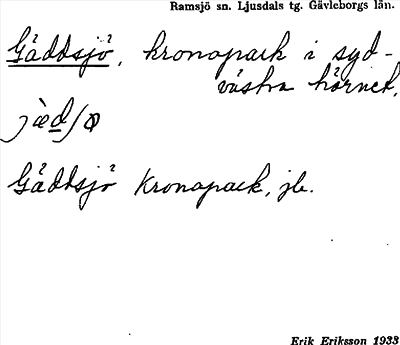 Ramsjö sn. Ljusdals tg. Gävleborgs län.
Gäddsjö, kronopark i syd-
västra hörnet.
Gäddsjö Kronopark, jb.
Erik Eriksson 1933